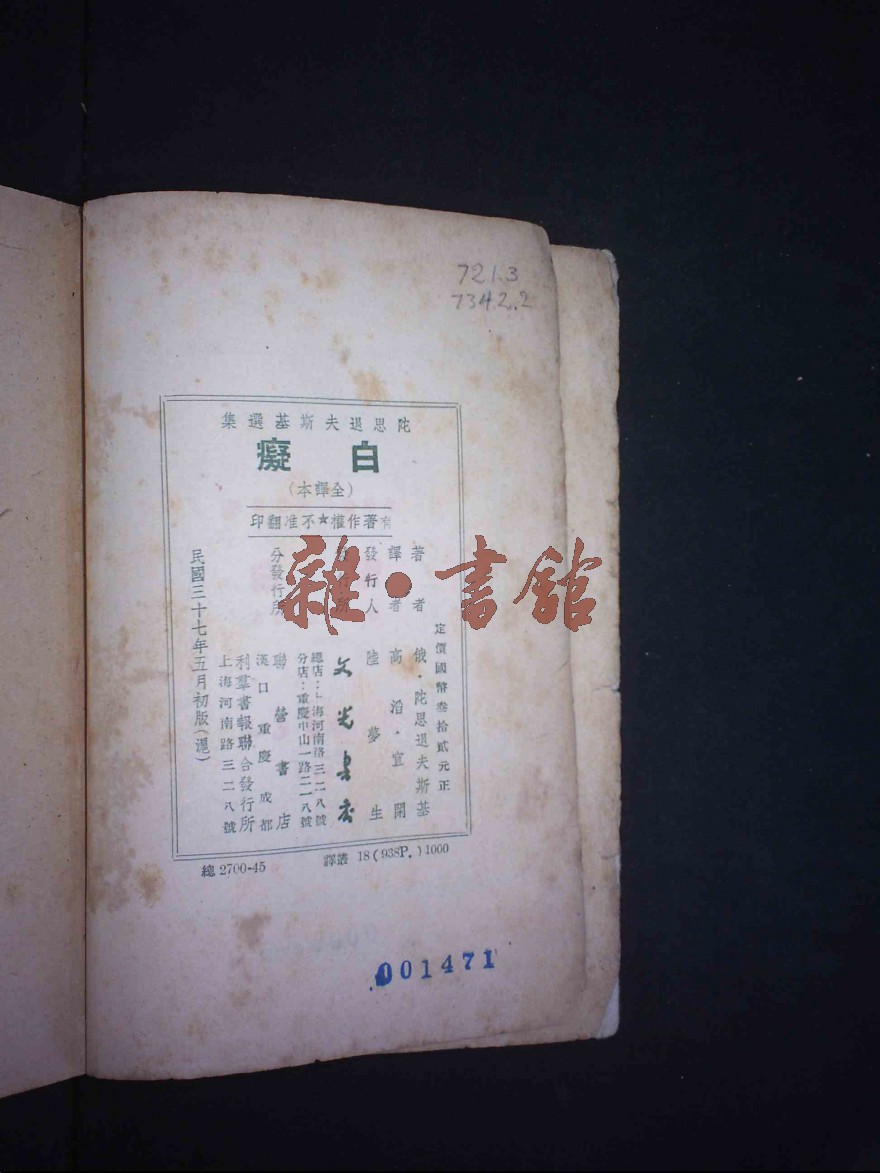 721.3
7342.2
陀思退夫斯基選集
白癡
(全譯本)
有著作權★不准翻印
定價國幣叁拾貳元正
著者 俄·陀思退夫斯基
譯者 高滔·宜閑
發行人 陸夢生
發行所 文光書店
總店:上海河南路三二八號
分店:重慶中山一路二一八號
分發行所 聯營書店
漢口 重慶 成都
利羣書報聯合發行所
上海河南路三二八號
民國三十七年五月初版(滬)
總 2700-45
譯叢 18(938P.)1000
001471
雜·書館